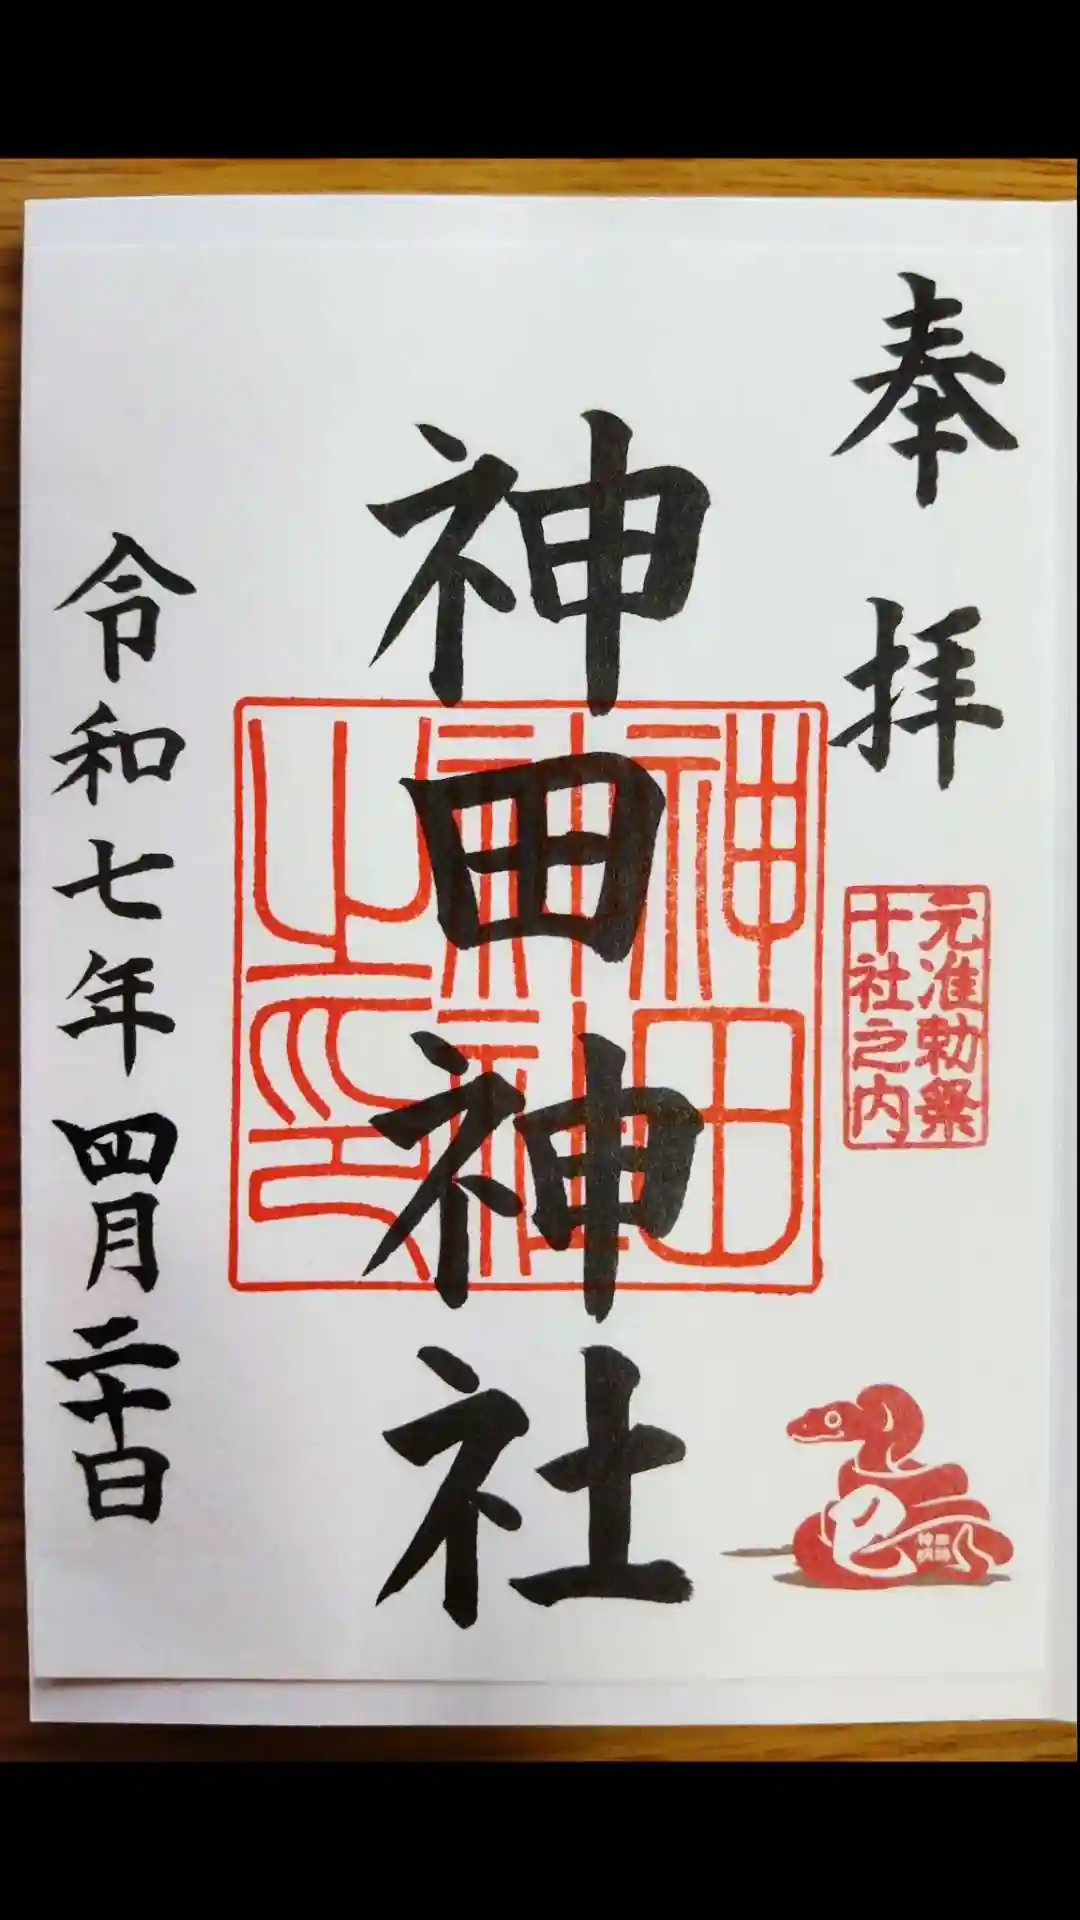 奉拝
元准勅祭
十社之内
巳
神田神社
神田
神社
之印
令和七年四月二十日